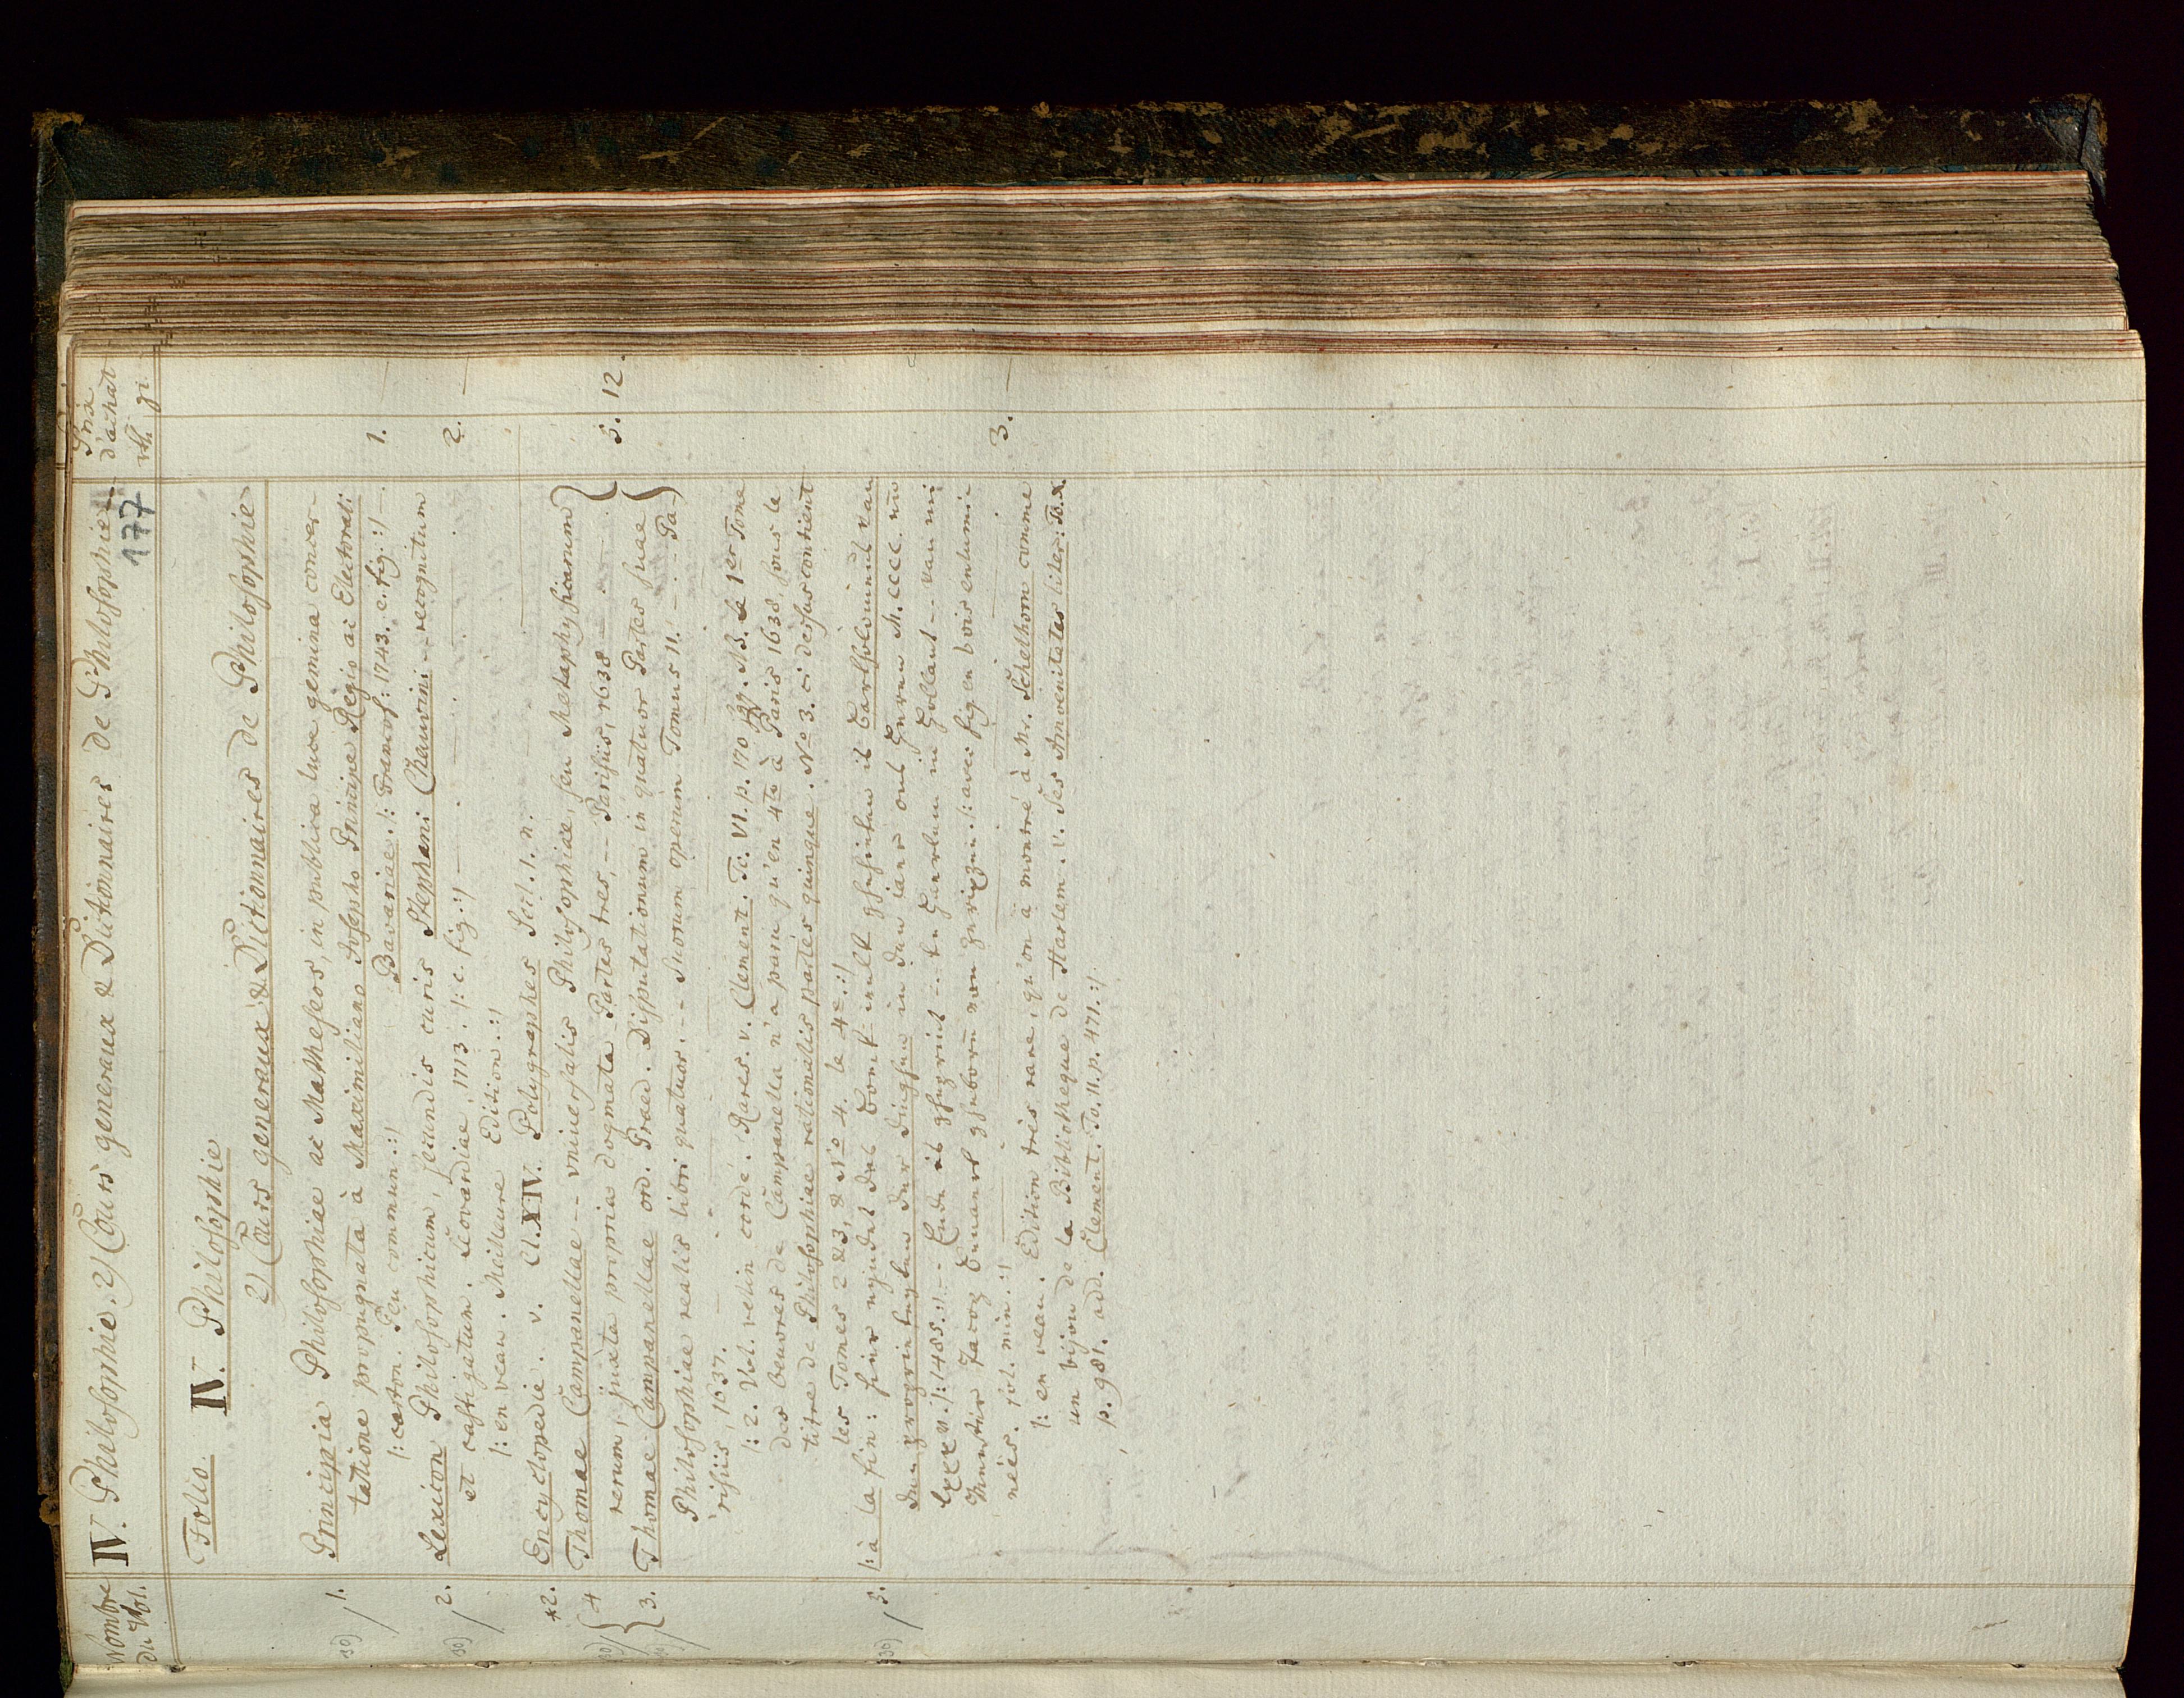 Nombre du Vol.
IV. Philosophie. 2) Cours generaux & Dictionnaires de Philosophie
177
Prix d'achat
rth. gr.
Folio. IV. Philosophie
2) Cours generaux & Dictionnaires de Philosophie
1. Principia Philosophiae ac Matheseos, in publica luce gemina concer-
tatione propugnata à Maximiliano Josepho Principe Regis ac Electorat:
Bavariae. /: Francof: 1743. c. fig. :/ — 1. —
/: carton. Peu commun :/
2. Lexicon Philosophicum, secundis curis Stephani Chauvini -- recognitum
et castigatum. Leovardiae, 1713. /: c. fig. :/ — 2. —
/: en veau. Meilleure Edition. :/
*2. Encyclopedie. v. Cl. XIV. Polygraphes Sect. 1. n.
4 Thomae Campanellae -- universalis Philosophiae, seu Metaphysicarum
rerum, juxta propria dogmata Partes tres, -- Parisiis, 1638 — 5. 12.
3. Thomae Campanellae ord. Praed. Disputationum in quatuor Partes suae
Philosophiae realis libri quatuor. -- Suorum operum Tomus II. -- Pa-
risiis, 1637.
/: 2. Vol. velin cordé. Rares. v. Clement. To. VI. p. 170 sq. NB. Le 1er Tome
des oeuvres de Campanella n'a paru qu'en 4to à Paris 1638, sous le
titre de Philosophiae rationalis partes quinque. No 3. ci dessus contient
les Tomes 2 & 3, & No 4. le 4e. :/
3. /: à la fin: hier eyndet dat boeck welk ghehieten is bartholomeus van
den proprieteyten der dinghen in den iaer ons heren M.CCCC. en
lxxxv. /: 1485. :/ -- Ende is gheprint -- te haerlem in hollant -- van mi
Meester Jacop bellaert ghebore van zerixzee. /: avec fig en bois enlumi
nées. fol. min. :/ — 3. —
/: en veau. Edition très rare, qu'on a montré à Mr. Schelhorn comme
un bijou de la Bibliotheque de Harlem. v. Ses Amoenitates liter: To. X.
p. 981. add. Clement. To. II. p. 471. :/